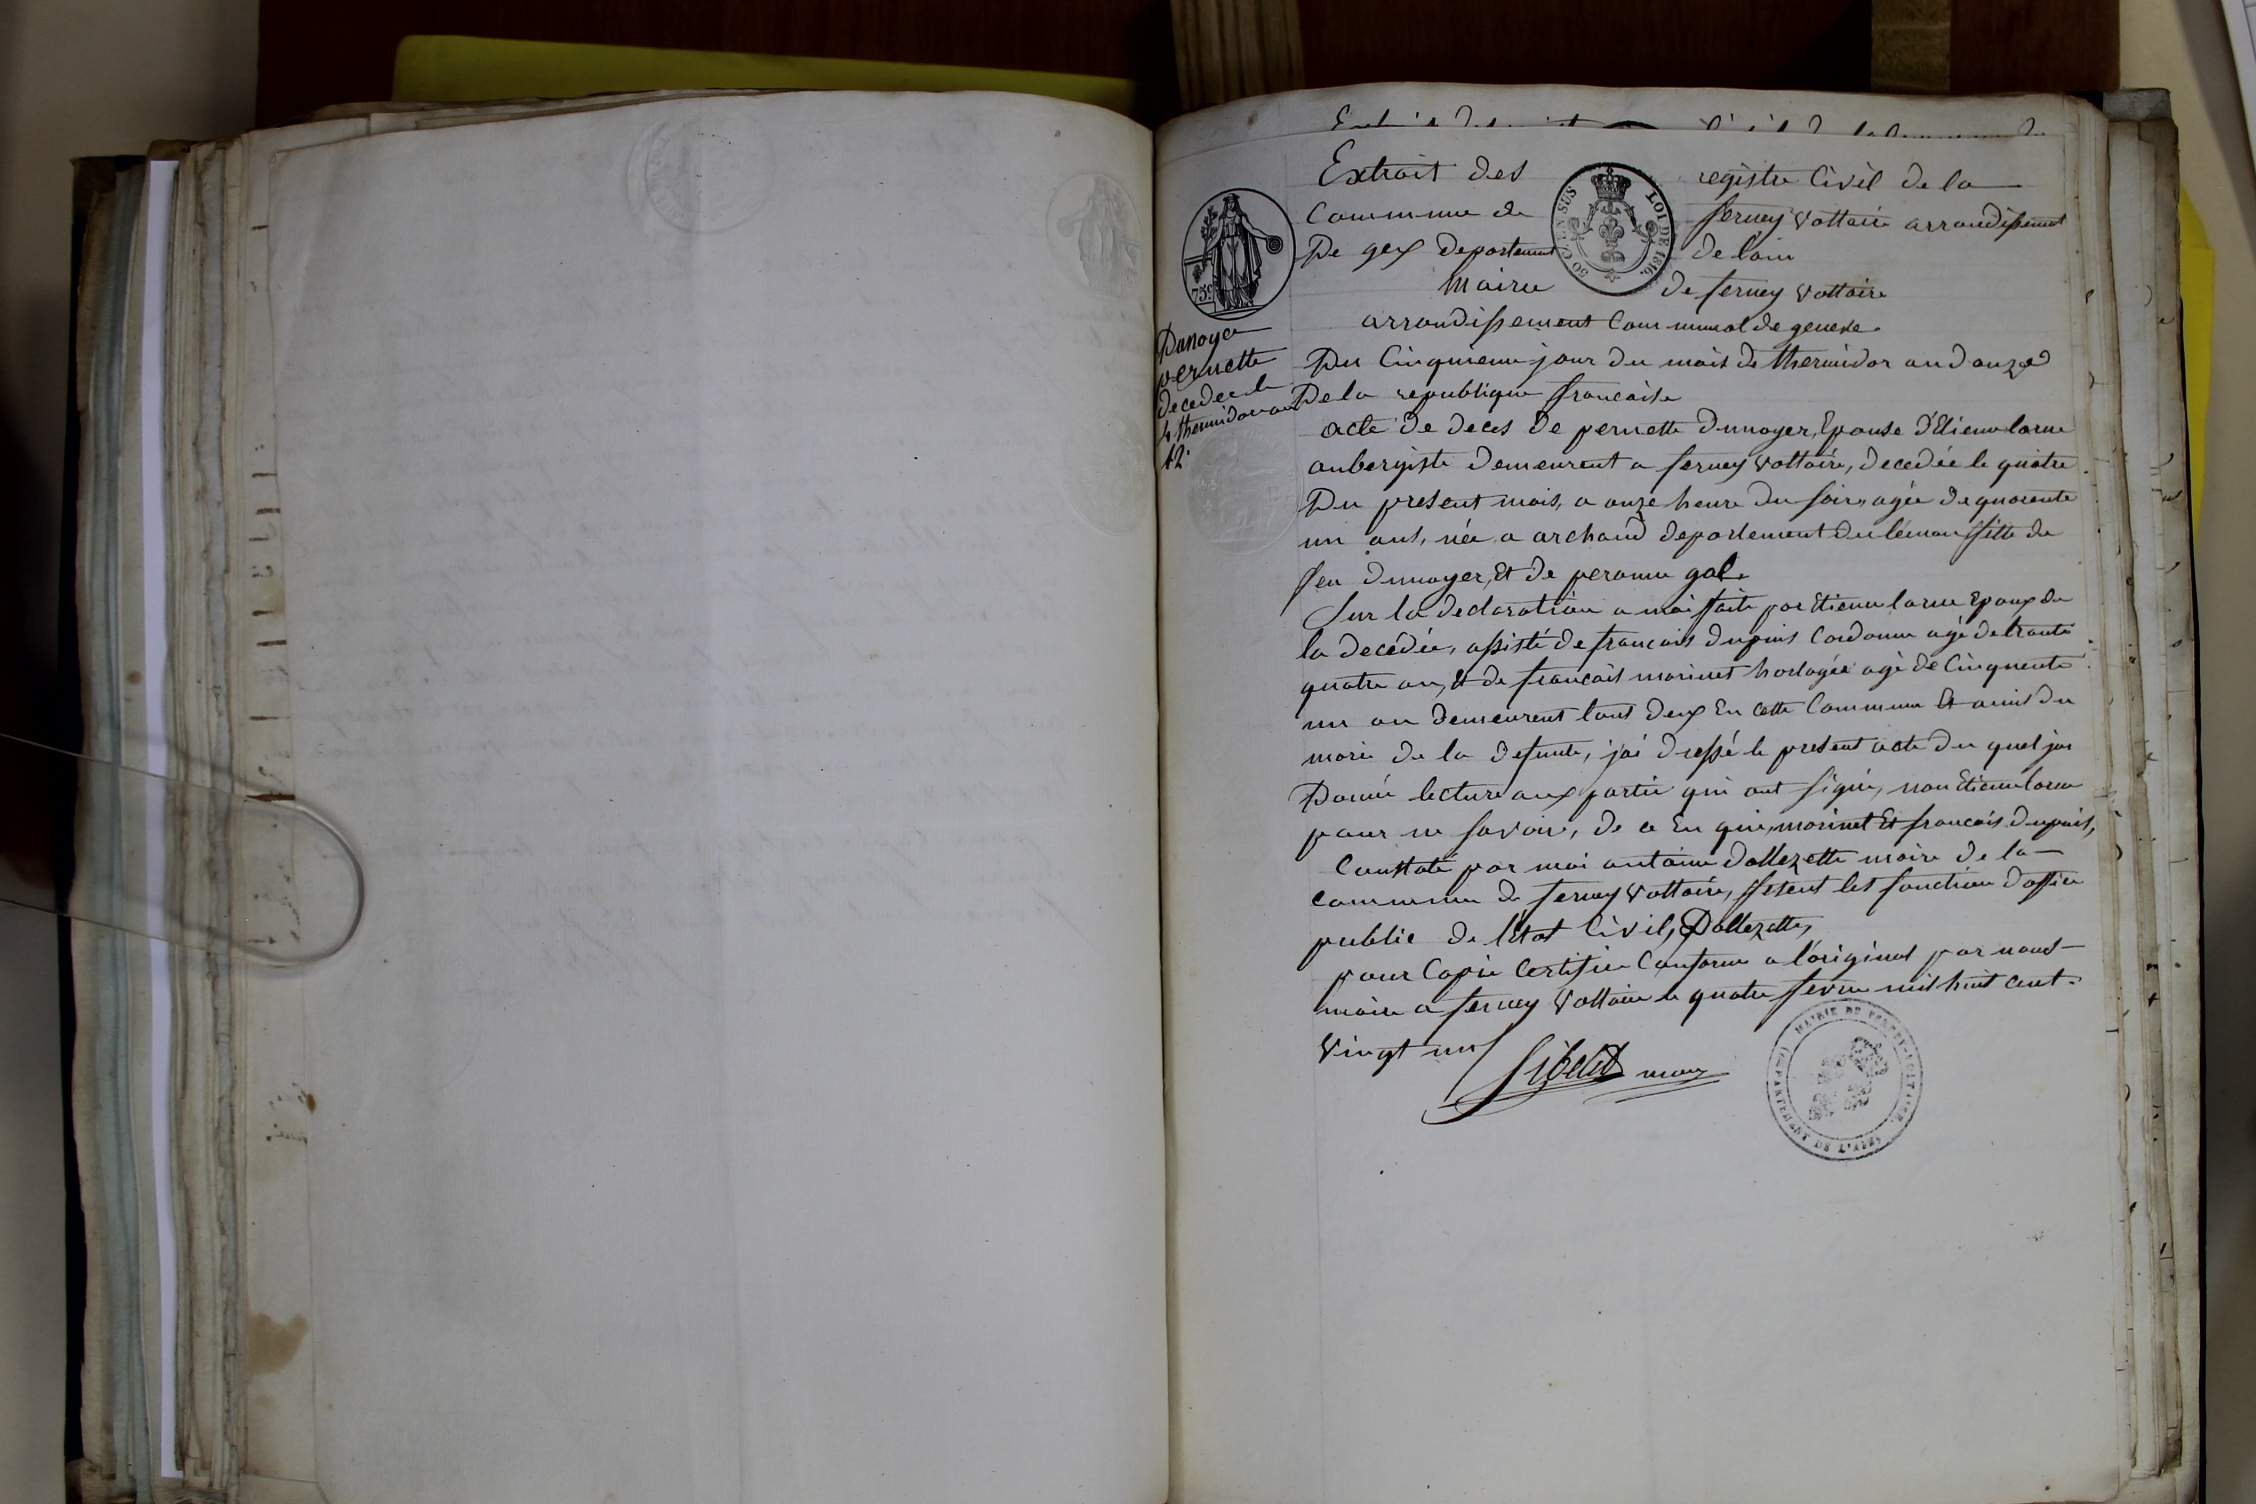 Extrait des registre Civil de la
Commune de ferney Voltaire arrondissement
De gex departement de lain
50 CEN. EN SUS
LOI DE 1816.
Mairie de ferney Voltaire
arrondissement Communal de geneve.
759
Dunoyer
pernette
decedee le
4 thermidor an
12.
Du Cinquieme jour du mois de thermidor an douze
De la republique francaise
acte de deces de pernette dunoyer, Epouse d'Etienne larue
aubergiste demeurent a ferney Voltaire, decedée le quatre
Du present mois, a onze heure du soir, agée de quarente
un ans, née a archand departement du léman fille de
feu dunoyer, Et de peronne gal.
Sur la declaration a moi faite par Etienne larue Epoux de
la decédée, assisté de francois dupuis Cordonne agé de trante
quatre an, Et de francois morinet horlogée agé de Cinquente
un an demeurent tous deux En cette Commune Et amis du
marie de la defunte, j'ai dressé le present acte du quel jai
Donnée lecture aux partie qui ont signée, non Etienne larue
pour ne savoir, de ce En quis, morinet Et francois dupuis,
Constaté par moi antoine Dallezette maire de la
commune de ferney Voltaire, fesent les fonction d'office
public de l'Etat Civil, Dallezette,
pour Copie Certifiée Conforme a l'original par nous
maire a ferney Voltaire le quatre fevrie mil huit cent
Vingt un
maire
MAIRIE DE FERNEY-VOLTAIRE
DÉPARTEMENT DE L'AIN